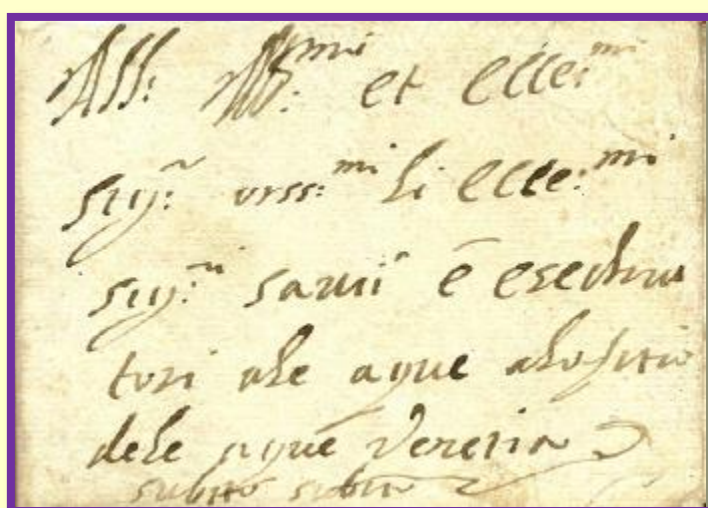 Ill:mi et Ecce:mi
Sig:ri oss:mi li Ecce:mi
Sig:ri Savii e esecu
tori ale aque al ofitio
dele aque Venetia
subito subito